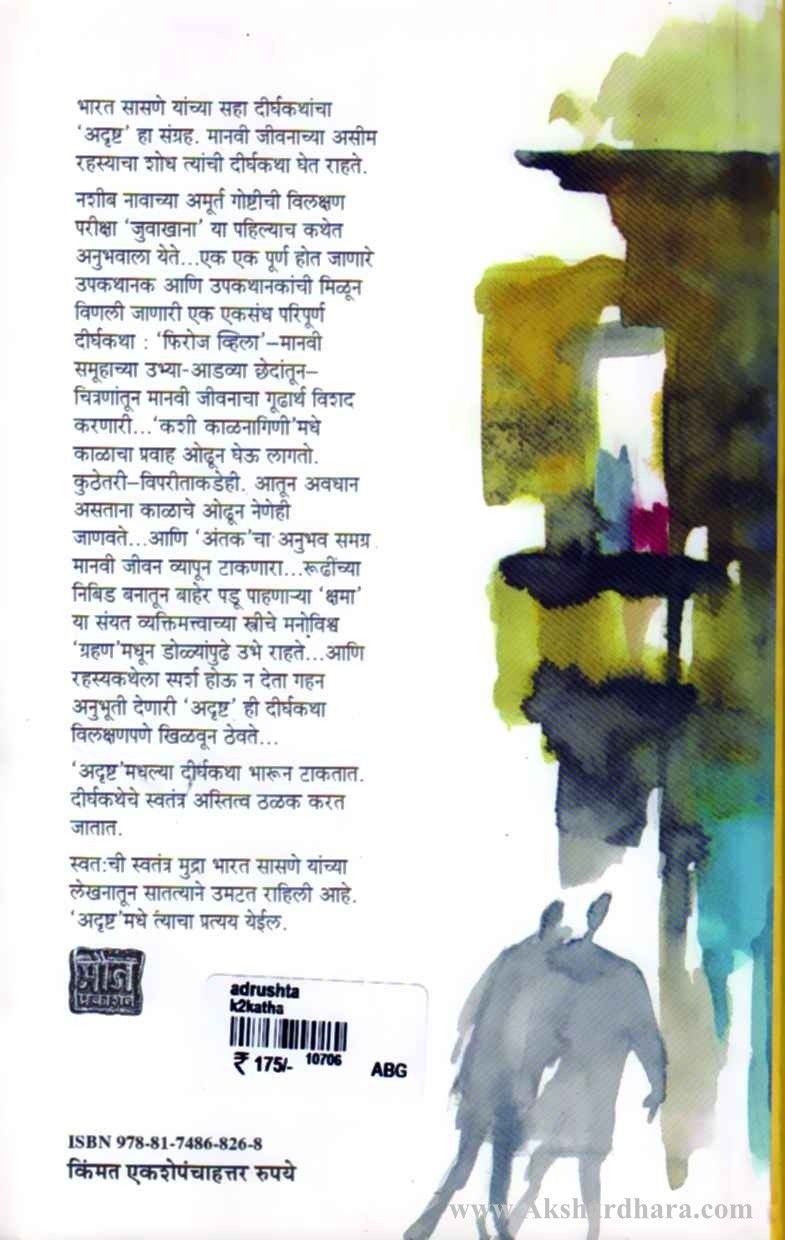 भारत सासणे यांच्या सहा दीर्घकथांचा
‘अदृष्ट’ हा संग्रह. मानवी जीवनाच्या असीम
रहस्याचा शोध त्यांची दीर्घकथा घेत राहते.
नशीब नावाच्या अमूर्त गोष्टीची विलक्षण
परीक्षा ‘जुवाखाना’ या पहिल्याच कथेत
अनुभवाला येते...एक एक पूर्ण होत जाणारे
उपकथानक आणि उपकथानकांची मिळून
विणली जाणारी एक एकसंध परिपूर्ण
दीर्घकथा : ‘फिरोज व्हिला’–मानवी
समूहाच्या उभ्या-आडव्या छेदांतून–
चित्रणांतून मानवी जीवनाचा गूढार्थ विशद
करणारी...‘कशी काळनागिणी’मधे
काळाचा प्रवाह ओढून घेऊ लागतो.
कुठेतरी–विपरीताकडेही. आतून अवधान
असताना काळाचे ओढून नेणेही
जाणवते...आणि ‘अंतक’चा अनुभव समग्र
मानवी जीवन व्यापून टाकणारा...रूढींच्या
निबिड बनातून बाहेर पडू पाहणाऱ्या ‘क्षमा’
या संयत व्यक्तिमत्त्वाच्या स्त्रीचे मनोविश्व
‘ग्रहण’मधून डोळ्यांपुढे उभे राहते...आणि
रहस्यकथेला स्पर्श होऊ न देता गहन
अनुभूती देणारी ‘अदृष्ट’ ही दीर्घकथा
विलक्षणपणे खिळवून ठेवते...
‘अदृष्ट’मधल्या दीर्घकथा भारून टाकतात.
दीर्घकथेचे स्वतंत्र अस्तित्व ठळक करत
जातात.
स्वतःची स्वतंत्र मुद्रा भारत सासणे यांच्या
लेखनातून सातत्याने उमटत राहिली आहे.
‘अदृष्ट’मधे त्याचा प्रत्यय येईल.
मौज
प्रकाशन
adrushta
k2katha
₹ 175/- 10706 ABG
ISBN 978-81-7486-826-8
किंमत एकशेपंचाहत्तर रुपये
www.Akshardhara.com